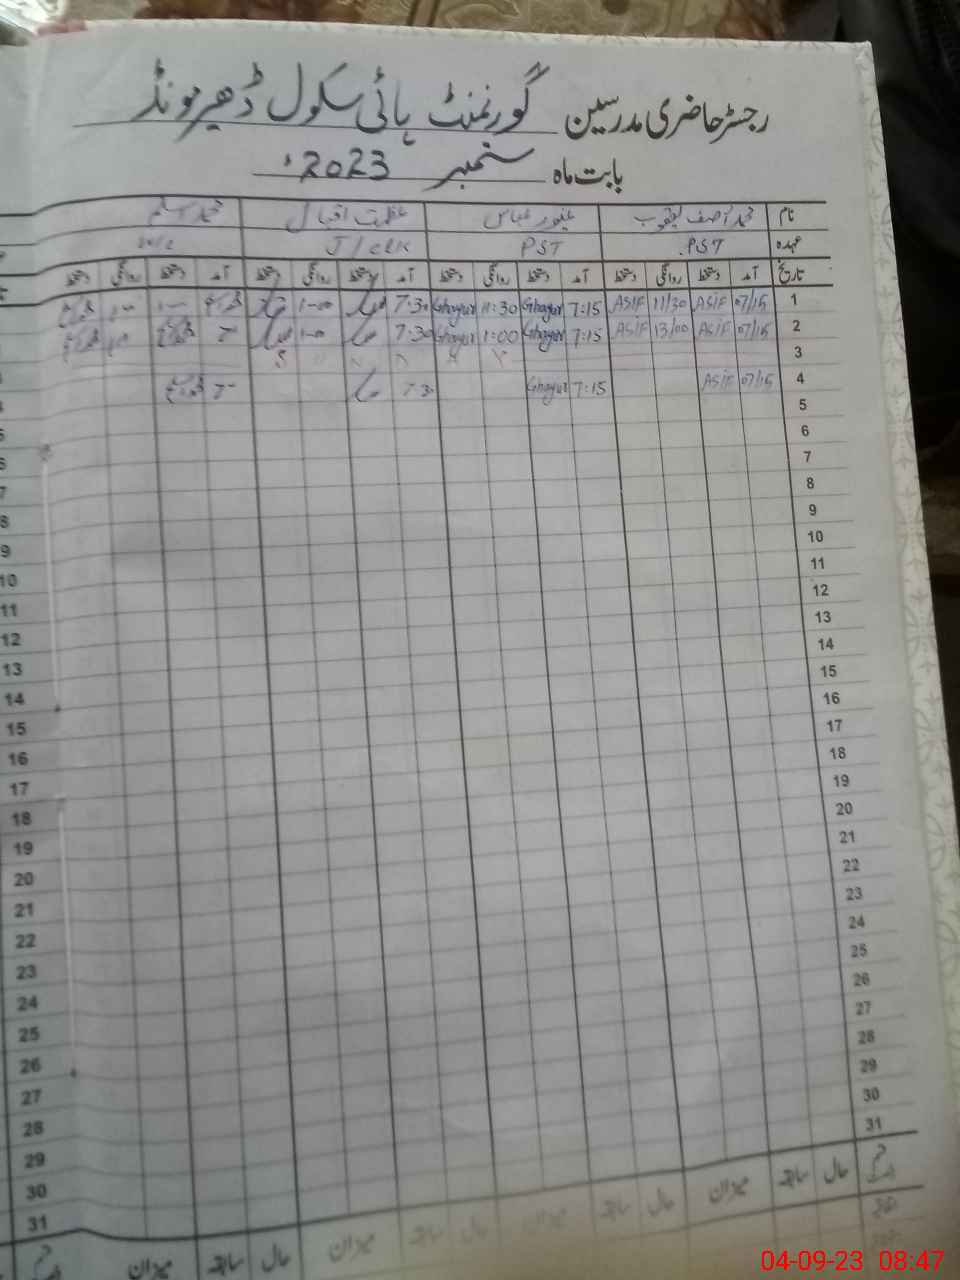 رجسٹر حاضری مدرسین گورنمنٹ ہائی سکول ڈھیر مونڈ
بابت ماہ ستمبر 2023ء
نام محمد آصف یعقوب غیور عباس عظمت اقبال محمد اسلم
عہدہ PST. PST J/clk
تاریخ آمد دستخط روانگی دستخط آمد دستخط روانگی دستخط آمد دستخط روانگی دستخط آمد دستخط روانگی دستخط
1 07/15 ASIF 11/30 ASIF 7:15 Ghayur 11:30 Ghayur 7:30 1-00
2 07/15 ASIF 13/00 ASIF 7:15 Ghayur 1:00 Ghayur 7:30 1-00
3
4 07/15 ASIF 7:15 Ghayur 7-30
5
6
7
8
9
10
11
12
13
14
15
16
17
18
19
20
21
22
23
24
25
26
27
28
29
30
31
حال سابقہ میزان حال سابقہ میزان حال سابقہ میزان حال سابقہ میزان
5
6
7
8
9
10
11
12
13
14
15
16
17
18
19
20
21
22
23
24
25
26
27
28
29
30
31
04-09-23 08:47